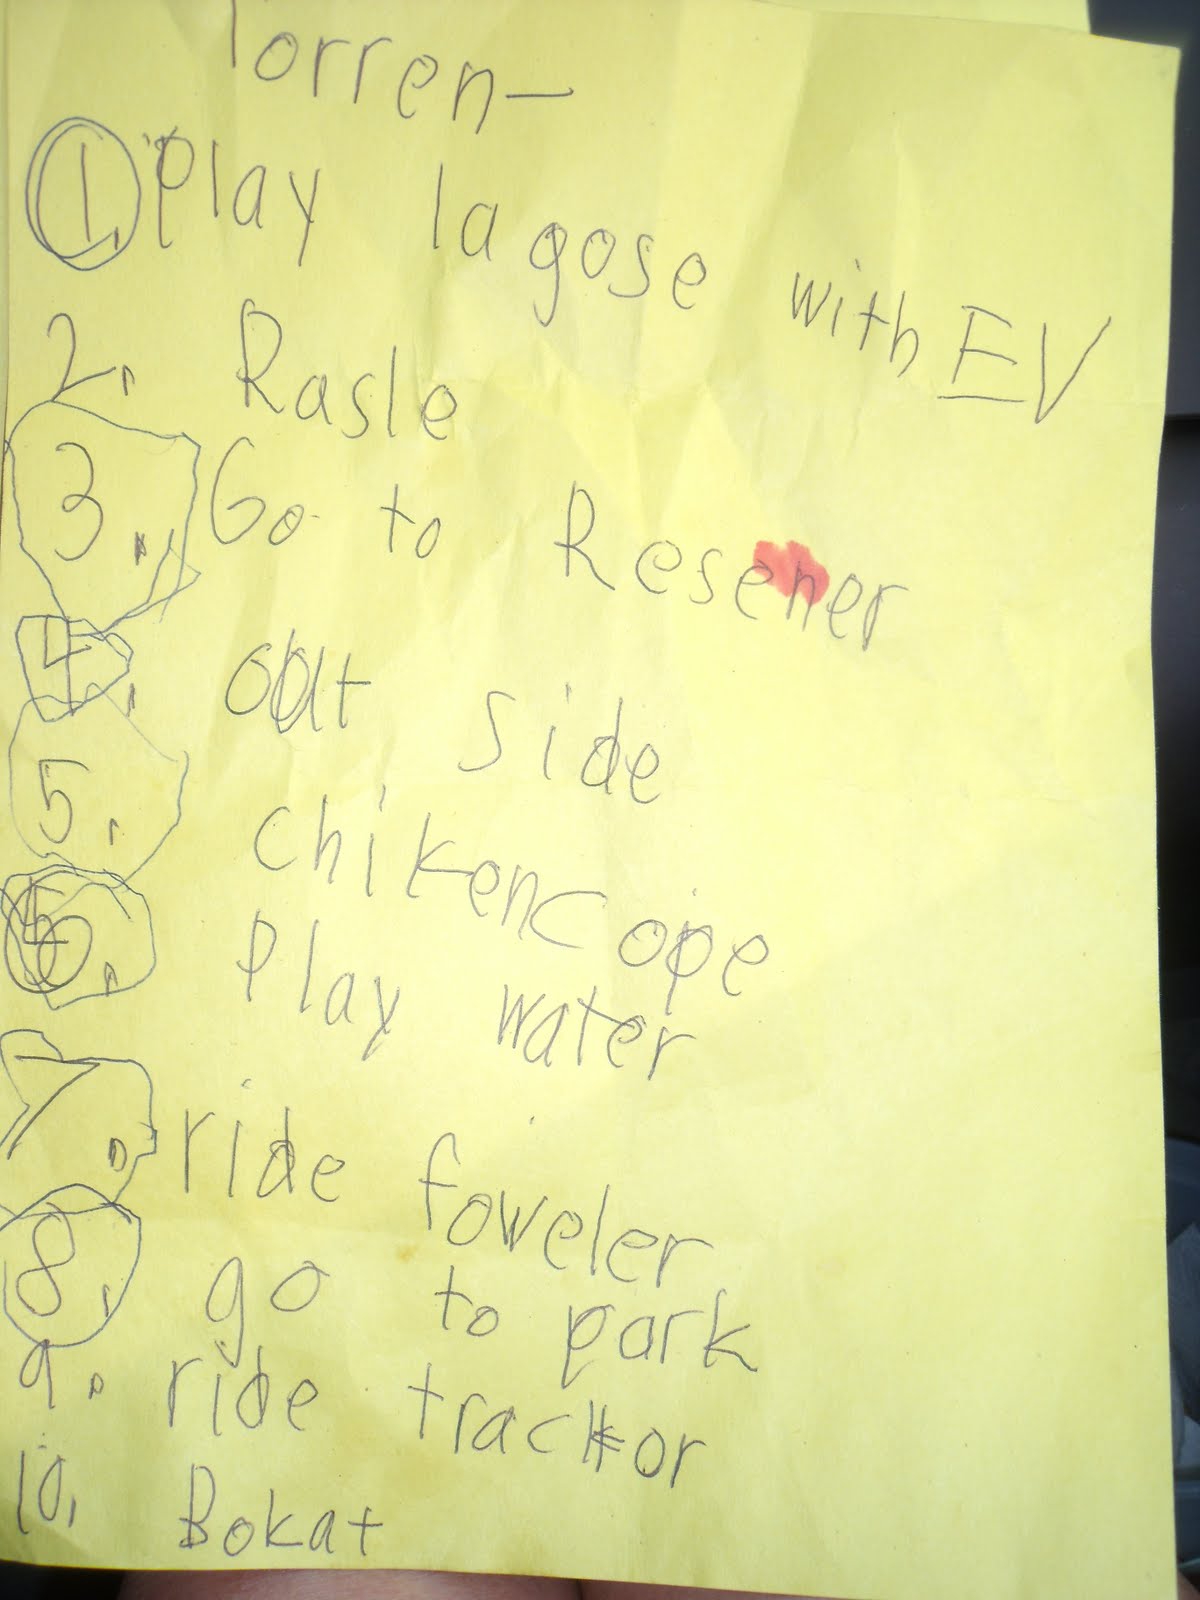 Torren-
1. Play lagose with EV
2. Rasle
3. Go to Resener
4. out side
5. chikencope
6. Play water
7. ride foweler
8. go to park
9. ride tracktor
10. Bokat